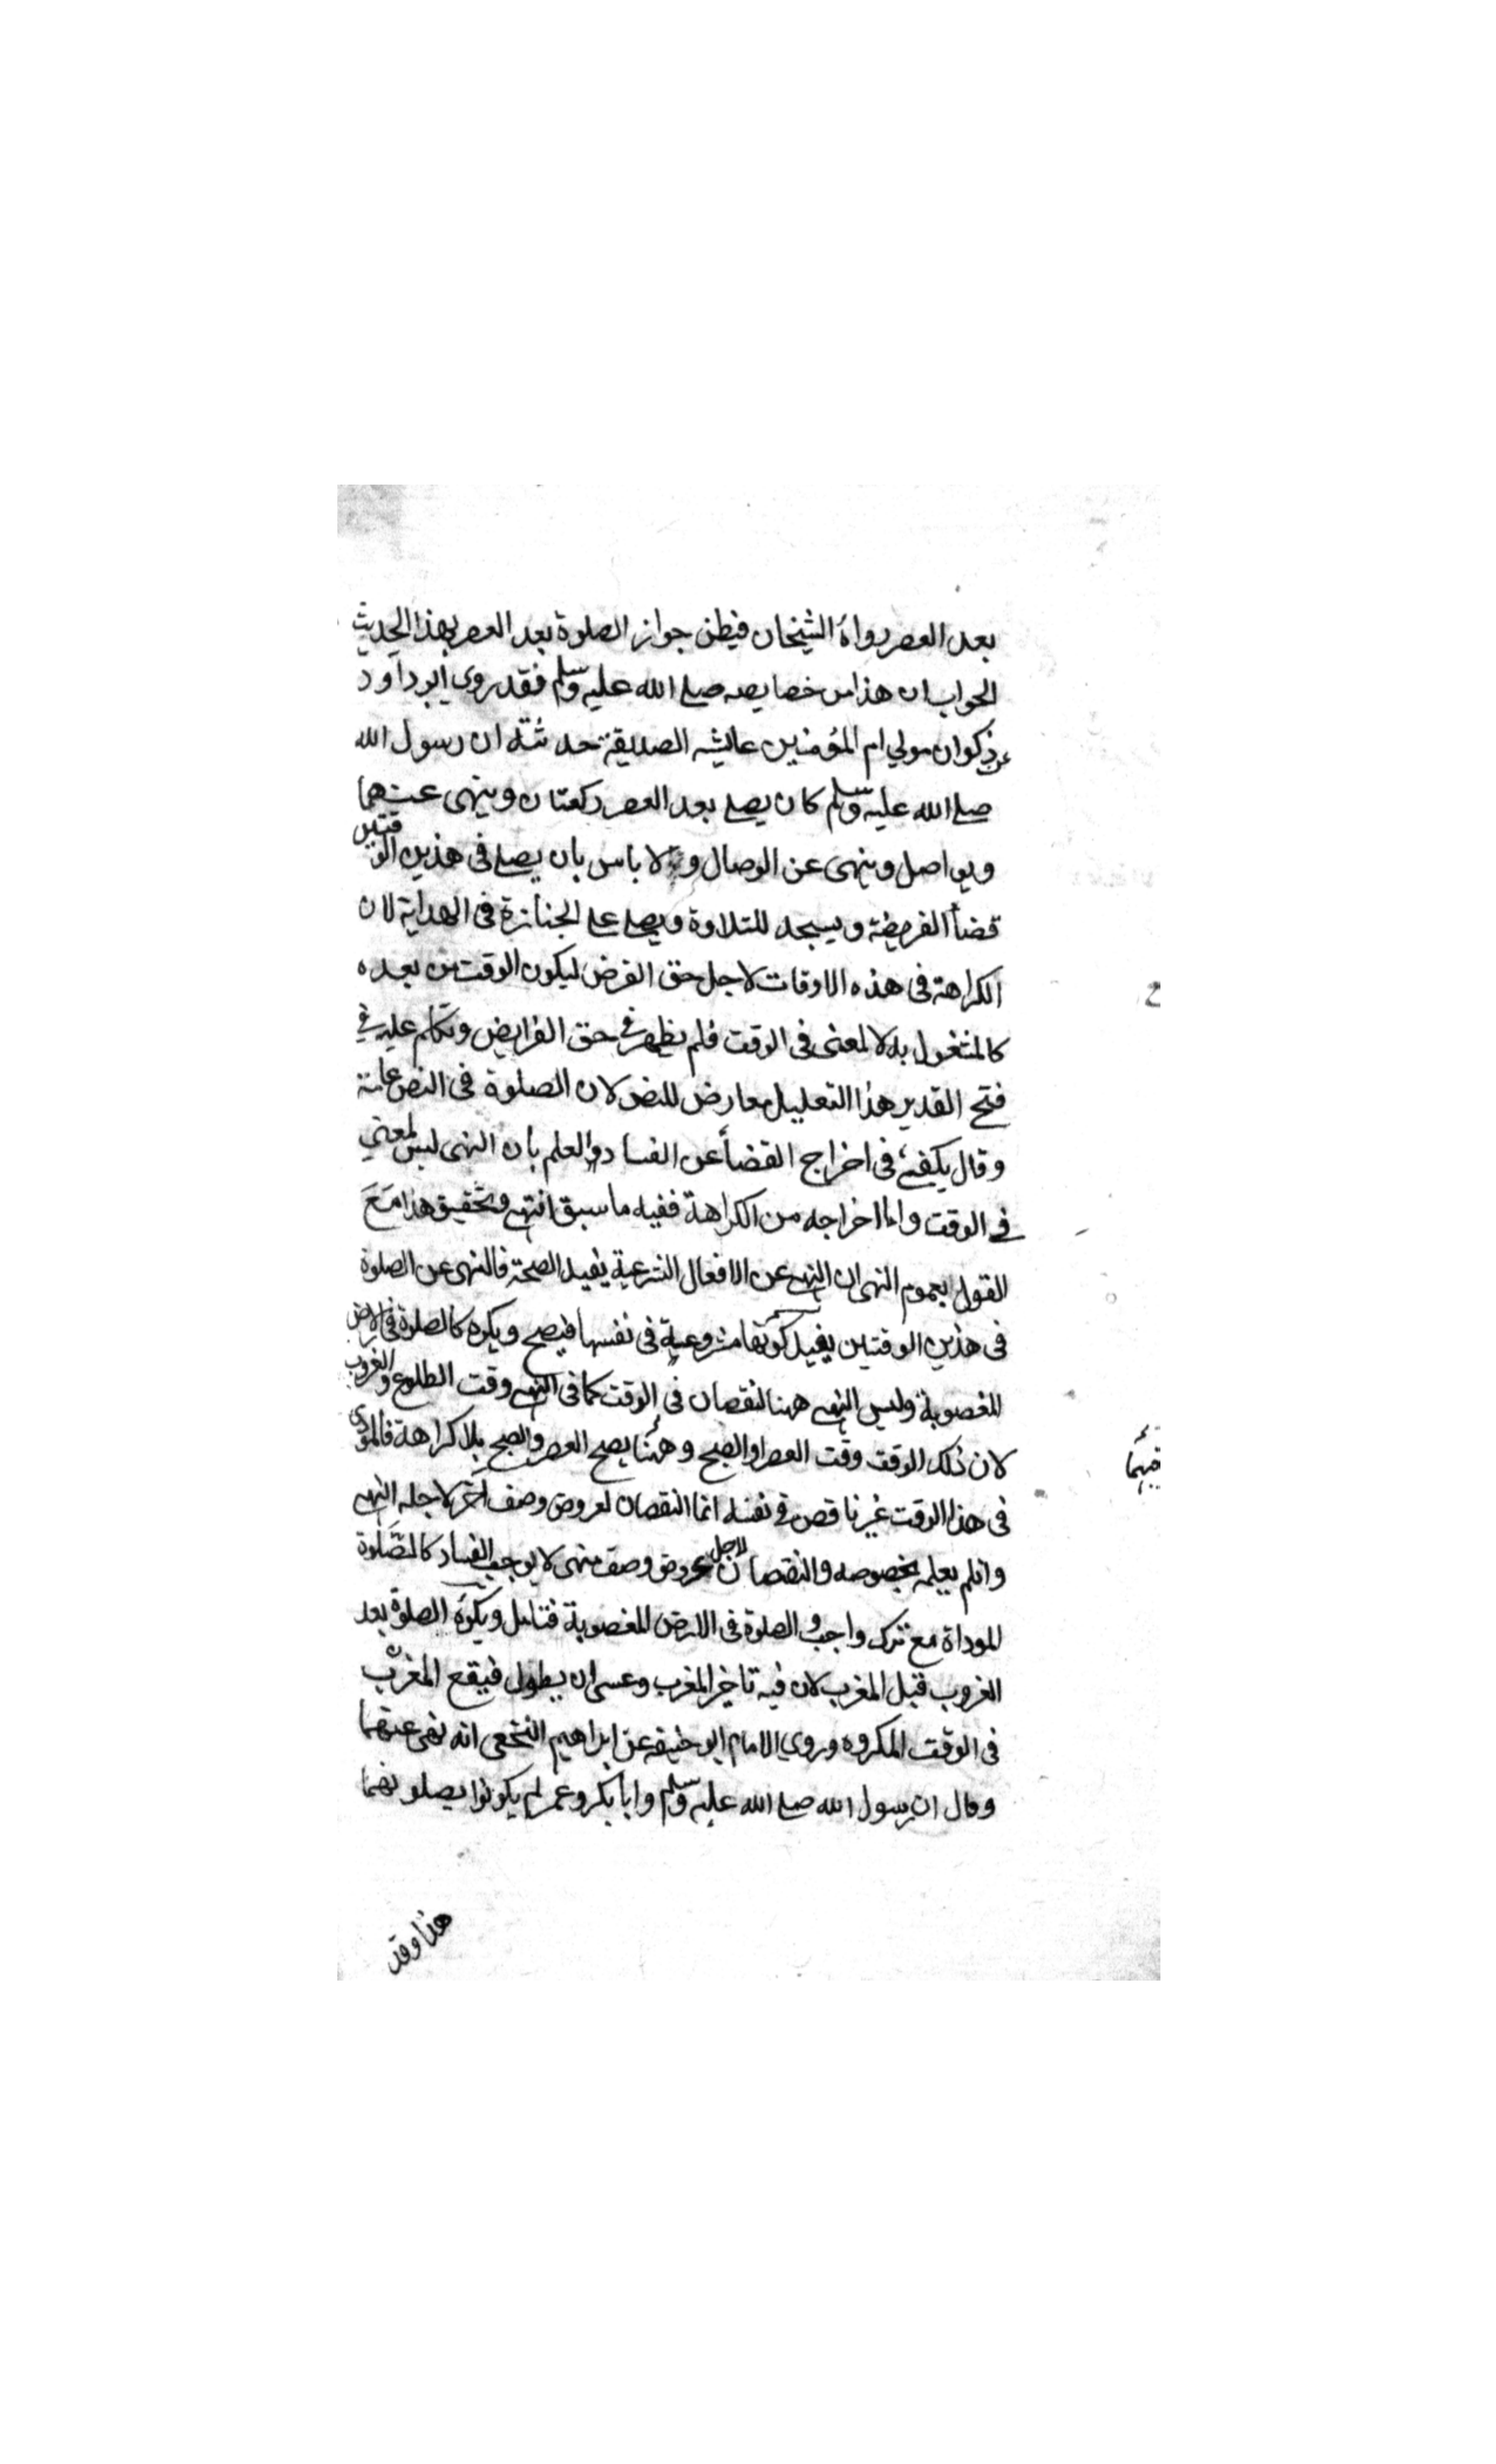 بعد العصر رواه الشيخان فيظن جواز الصلوة بعد العصر بهذا الحديث
الجواب ان هذا من خصايصه صلى الله عليه وسلم فقد روى ابو داود
عن ذكوان مولي ام المؤمنين عايشه الصديقة حدثته ان رسول الله
صلى الله عليه وسلم كان يصلى بعد العصر ركعتان وينهى عنهما
ويواصل وينهى عن الوصال ولا باس بان يصلى فى هذين الوقتين
قضأ الفريضة ويسجد للتلاوة ويصلى على الجنازة فى الهداية لان
الكراهة فى هذه الاوقات لاجل حق الفرض ليكون الوقت من بعده
كالمشغول به لا لمعنى فى الوقت فلم يظهر فى حق الفرايض وتكلم عليه في
فتح القدير هذا التعليل معارض للنص لان الصلوة فى النص عامة
وقال يكفى فى اخراج القضأ عن الفساد والعلم بان النهى ليس لمعني
فى الوقت واما اخراجه من الكراهة ففيه ما سبق انتهى وتحقيق هذا مع
القول بعموم النهى ان النهى عن الافعال الشرعية يفيد الصحة فالنهى عن الصلوة
فى هذين الوقتين يفيد كونها مشروعية فى نفسها فيصح ويكره كالصلوة فى الارض
المغصوبة وليس النهى ههنا لنقصان فى الوقت كما فى النهى وقت الطلوع والغروب
لان ذلك الوقت وقت العصر او الصبح وههنا يصح العصر والصبح بلا كراهة فالمؤدى
فى هذا الوقت غير ناقص فى نفسه انما النقصان لعروض وصف آخر لاجله النهى
وانلم يعلم بخصوصه والنقصان لاجل عروض وصف منهى لا يوجب الفساد كالصلوة
الموداة مع ترك واجب والصلوة فى الارض المغصوبة فتامل ويكره الصلوة بعد
الغروب قبل المغرب لان فيه تاخير المغرب وعسى ان يطول فيقع المغرب
فى الوقت المكروه وروي الامام ابو حنيفه عن ابراهيم النخعى انه نهى عنهما
وقال ان رسول الله صلى الله عليه وسلم وابا بكر وعمر لم يكونوا يصلونهما
هذا وقد